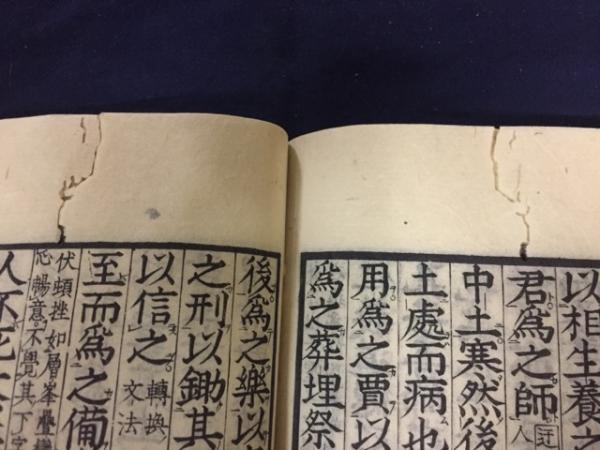 以相生養之
君爲之師 人
中土寒然後
土處而病也
用爲之賈以
爲之葬埋祭
後爲之樂以
之刑以鋤其
以信之 轉換
文法
至而爲之備
伏頓挫如層峯疊
暢意不覺其下字
人不死大